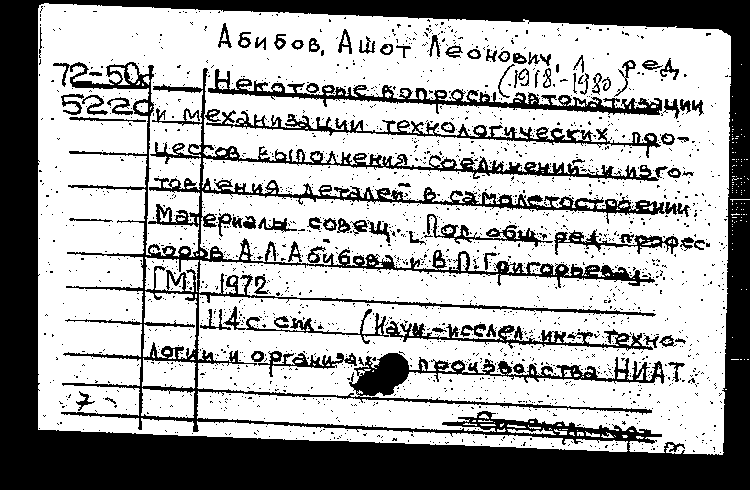 Абибов, Ашот Леонович, ред.
(1918-1980)
72-50
5220
Некоторые вопросы автоматизации
и механизации технологических про-
цессов выполнения соединений и изго-
товления деталей в самолетостроении.
Материалы совещ. Под общ. ред. профес-
соров А.Л. Абибова и В.П. Григорьева.
[М], 1972.
114 с. с ил. (Науч.-исслед. ин-т техно-
логии и организации производства НИАТ.
7
См. след. карт